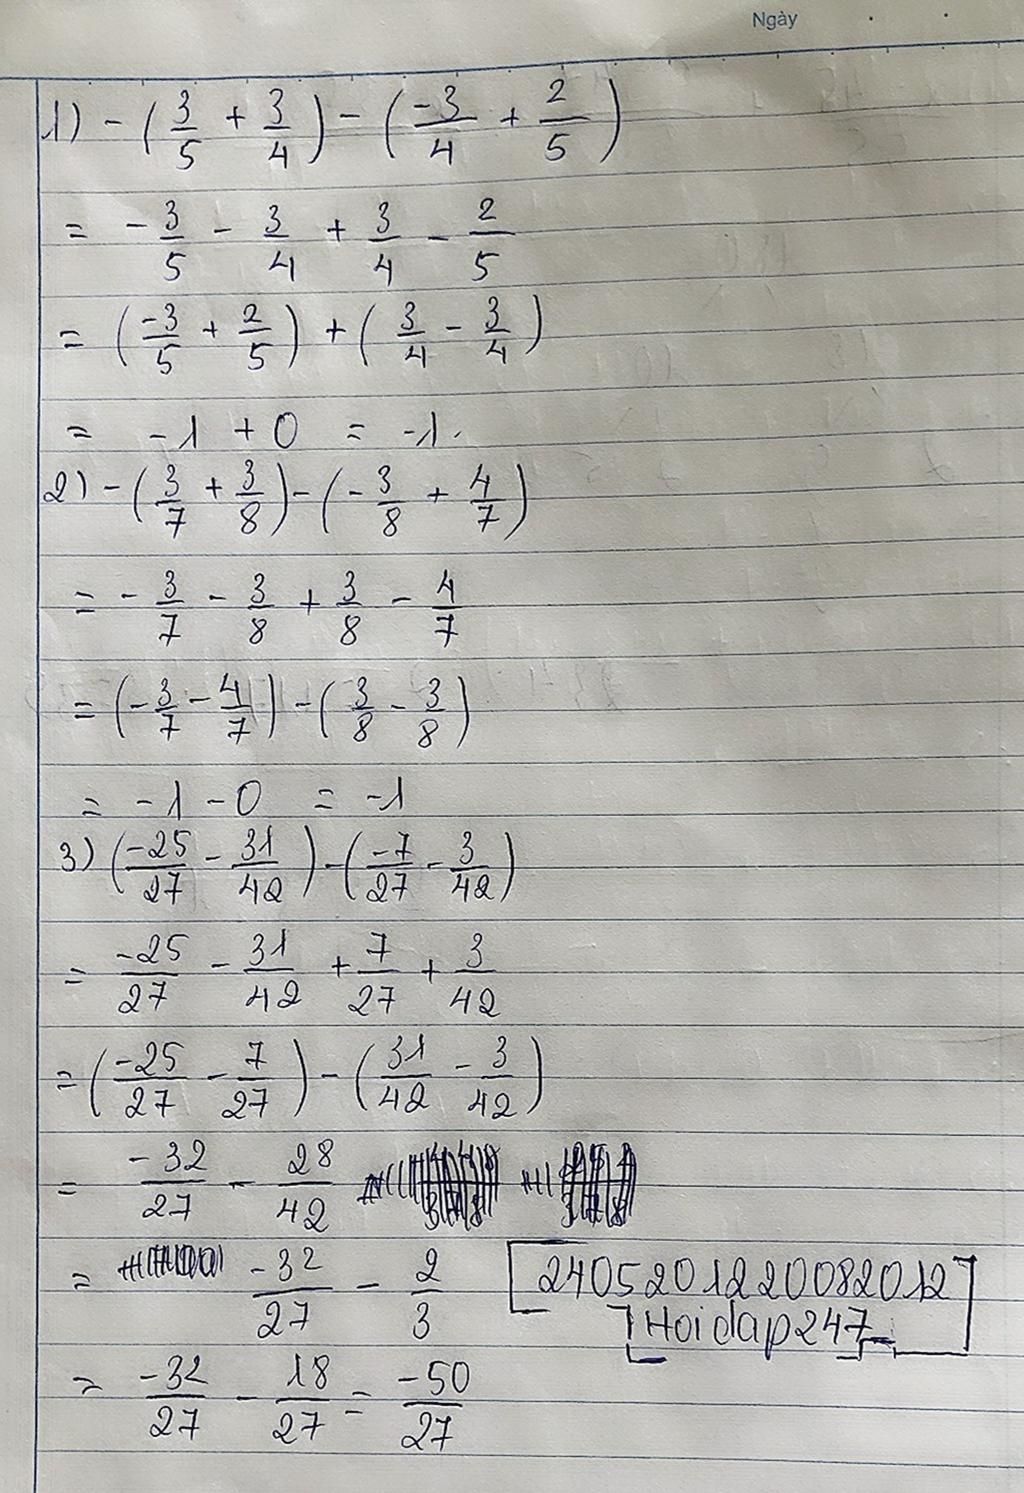 Ngày
1) -(3/5 + 3/4) - (-3/4 + 2/5)
= -3/5 - 3/4 + 3/4 - 2/5
= (-3/5 + 2/5) + (3/4 - 3/4)
= -1 + 0 = -1.
2) -(3/7 + 3/8) - (-3/8 + 4/7)
= -3/7 - 3/8 + 3/8 - 4/7
= (-3/7 - 4/7) - (3/8 - 3/8)
= -1 - 0 = -1
3) (-25/27 - 31/42) - (-7/27 - 3/42)
= -25/27 - 31/42 + 7/27 + 3/42
= (-25/27 - 7/27) - (31/42 - 3/42)
= -32/27 - 28/42
= -32/27 - 2/3
2405201220082012
Hoidap247
= -32/27 - 18/27 = -50/27